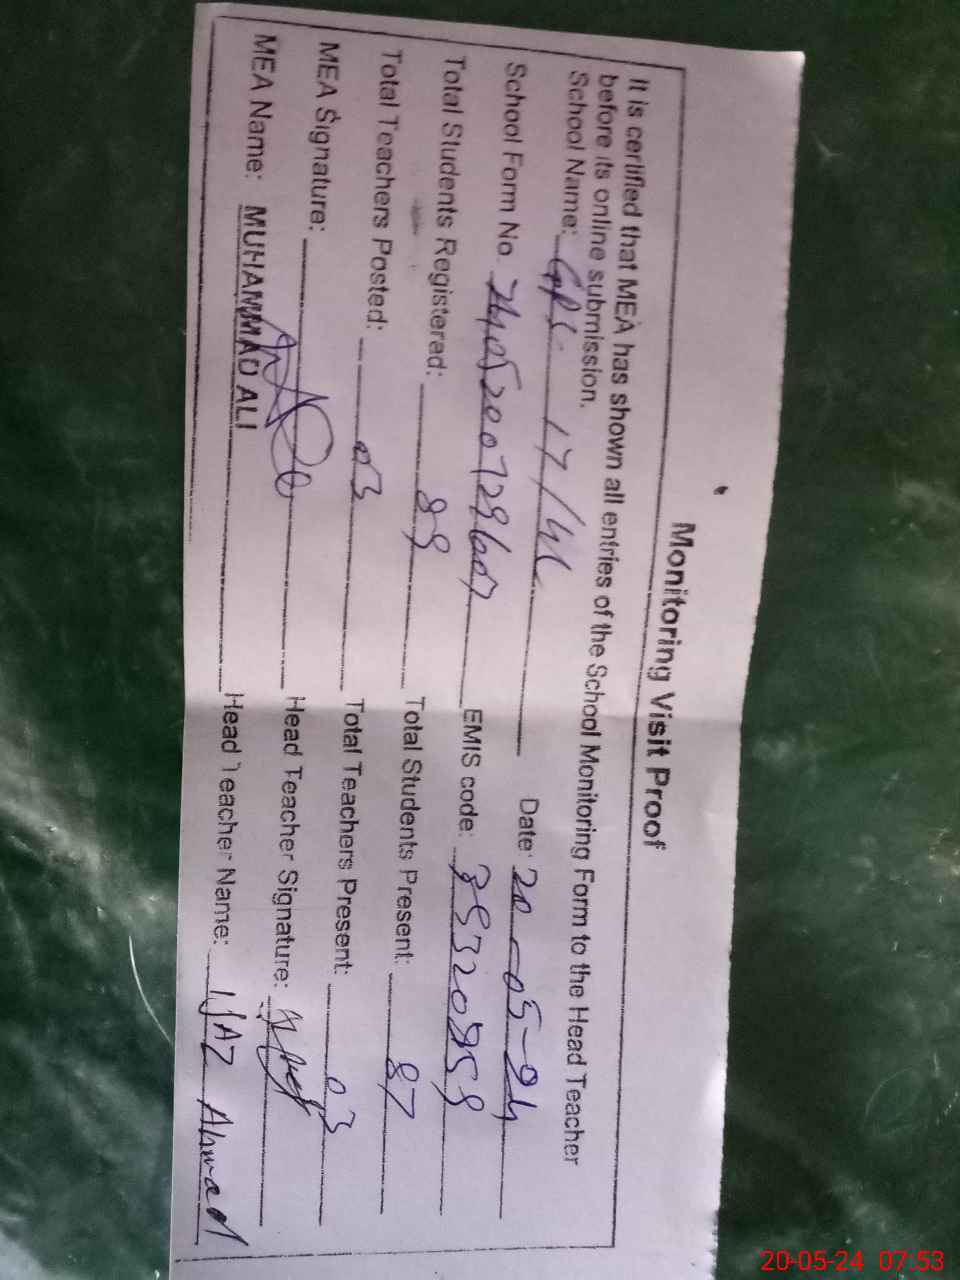 Monitoring Visit Proof
It is certified that MEA has shown all entries of the School Monitoring Form to the Head Teacher
before its online submission.
School Name: GPS 17/4L Date: 20-05-24
School Form No. EMIS code:
Total Students Registered: 89 Total Students Present: 87
Total Teachers Posted: 03 Total Teachers Present: 03
MEA Signature: Head Teacher Signature:
MEA Name: MUHAMMAD ALI Head Teacher Name: IJAZ Ahmad
20-05-24 07:53